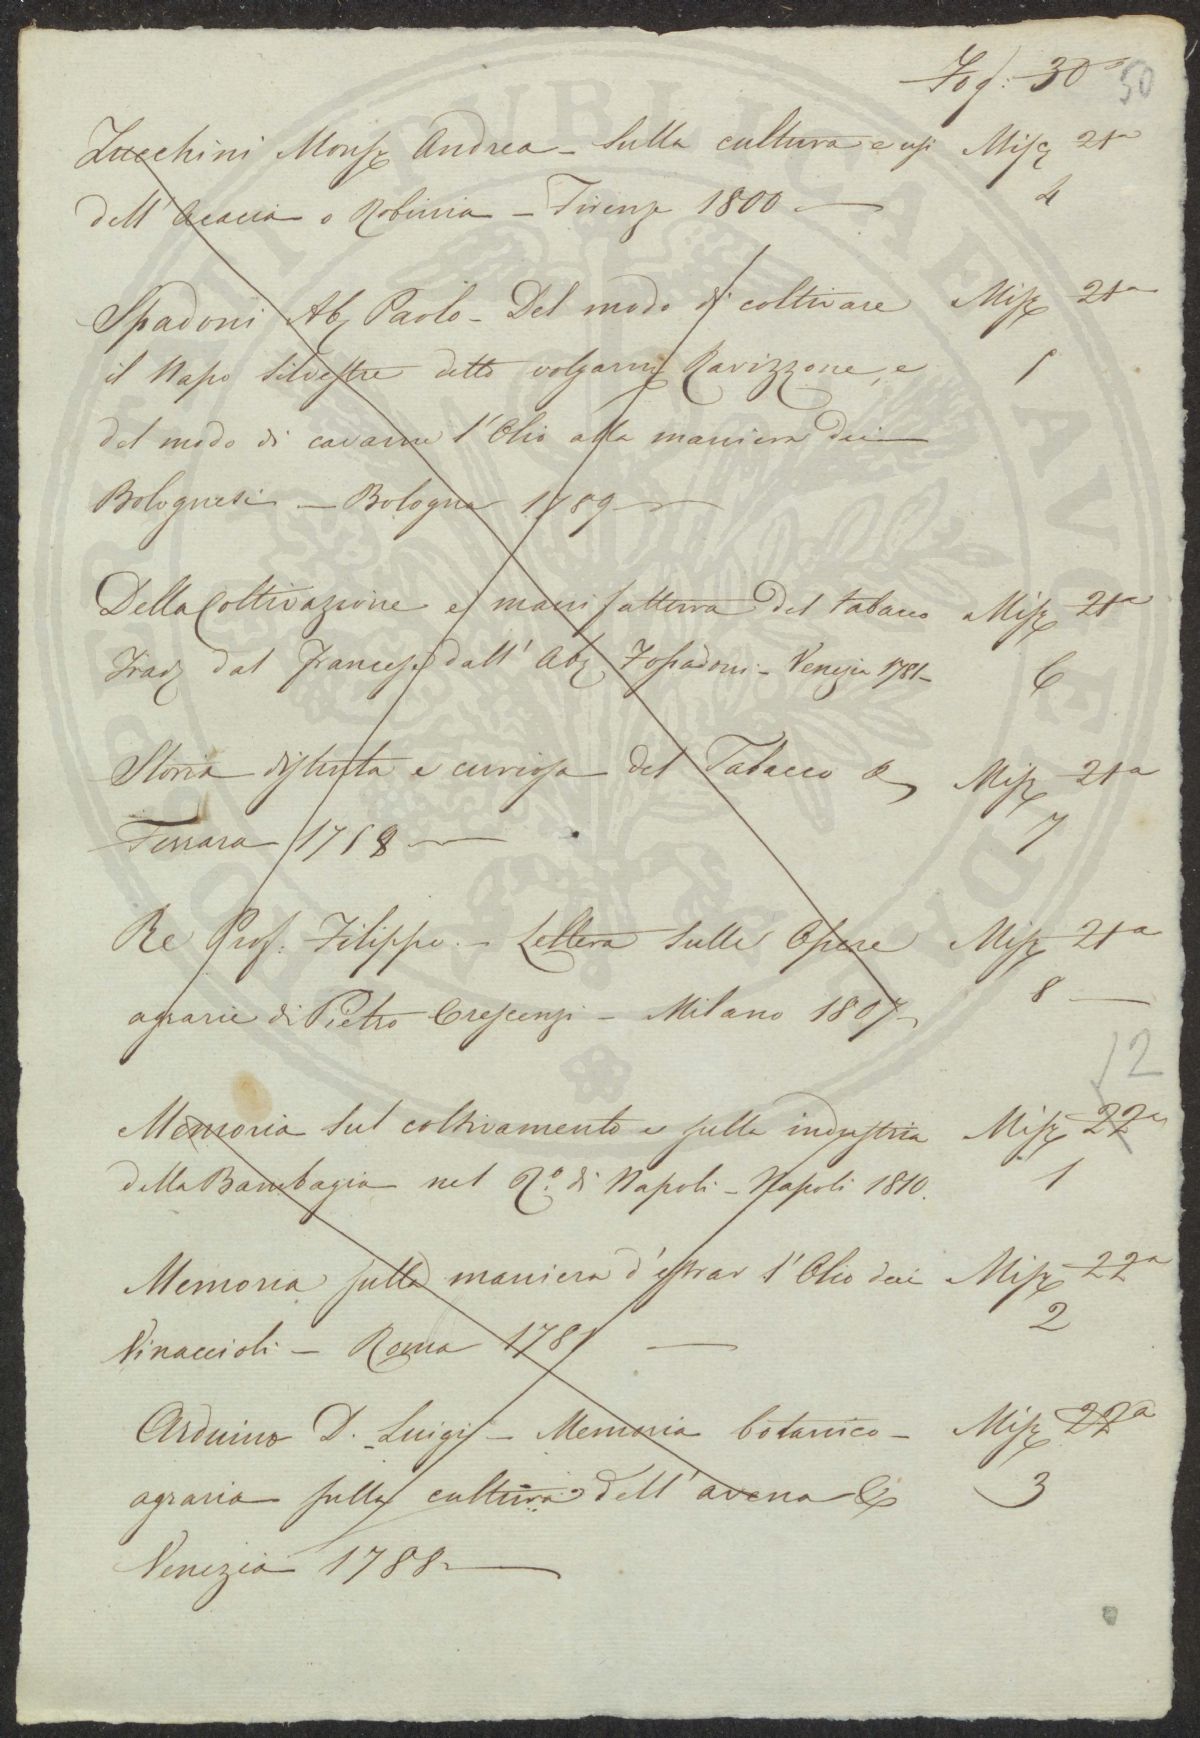 Fog: 30
50
Zucchini Monsr Andrea - Sulla cultura e usi Misc 21a
dell'Acacia o Robinia - Firenze 1800 4
Spadoni Ab. Paolo - Del modo di coltivare Misc 21a
il Napo silvestre detto volgarmte Ravizzone, e 5
del modo di cavarne l'Olio alla maniera dei
Bolognesi - Bologna 1789
Della Coltivazione e manifattura del tabacco Misc 21a
Trad dal francese dall'Ab. - Venezia 1781 - 6
Storia distinta e curiosa del Tabacco & Misc 21a
Ferrara 1758 7
Re Prof: Filippo - Lettera sulle Opere Misc 21a
agrarie di Pietro Crescenzi - Milano 1807 8
12
Memoria sul coltivamento e sulla industria Misc 22a
della Bambagia nel Ro. di Napoli - Napoli 1810. 1
Memoria sulla maniera d'estrar l'Olio dai Misc 22a
Vinaccioli - Roma 1781 2
Arduino D. Luigi - Memoria botanico - Misc 22a
agraria sulla cultura dell'avena & 3
Venezia 1788